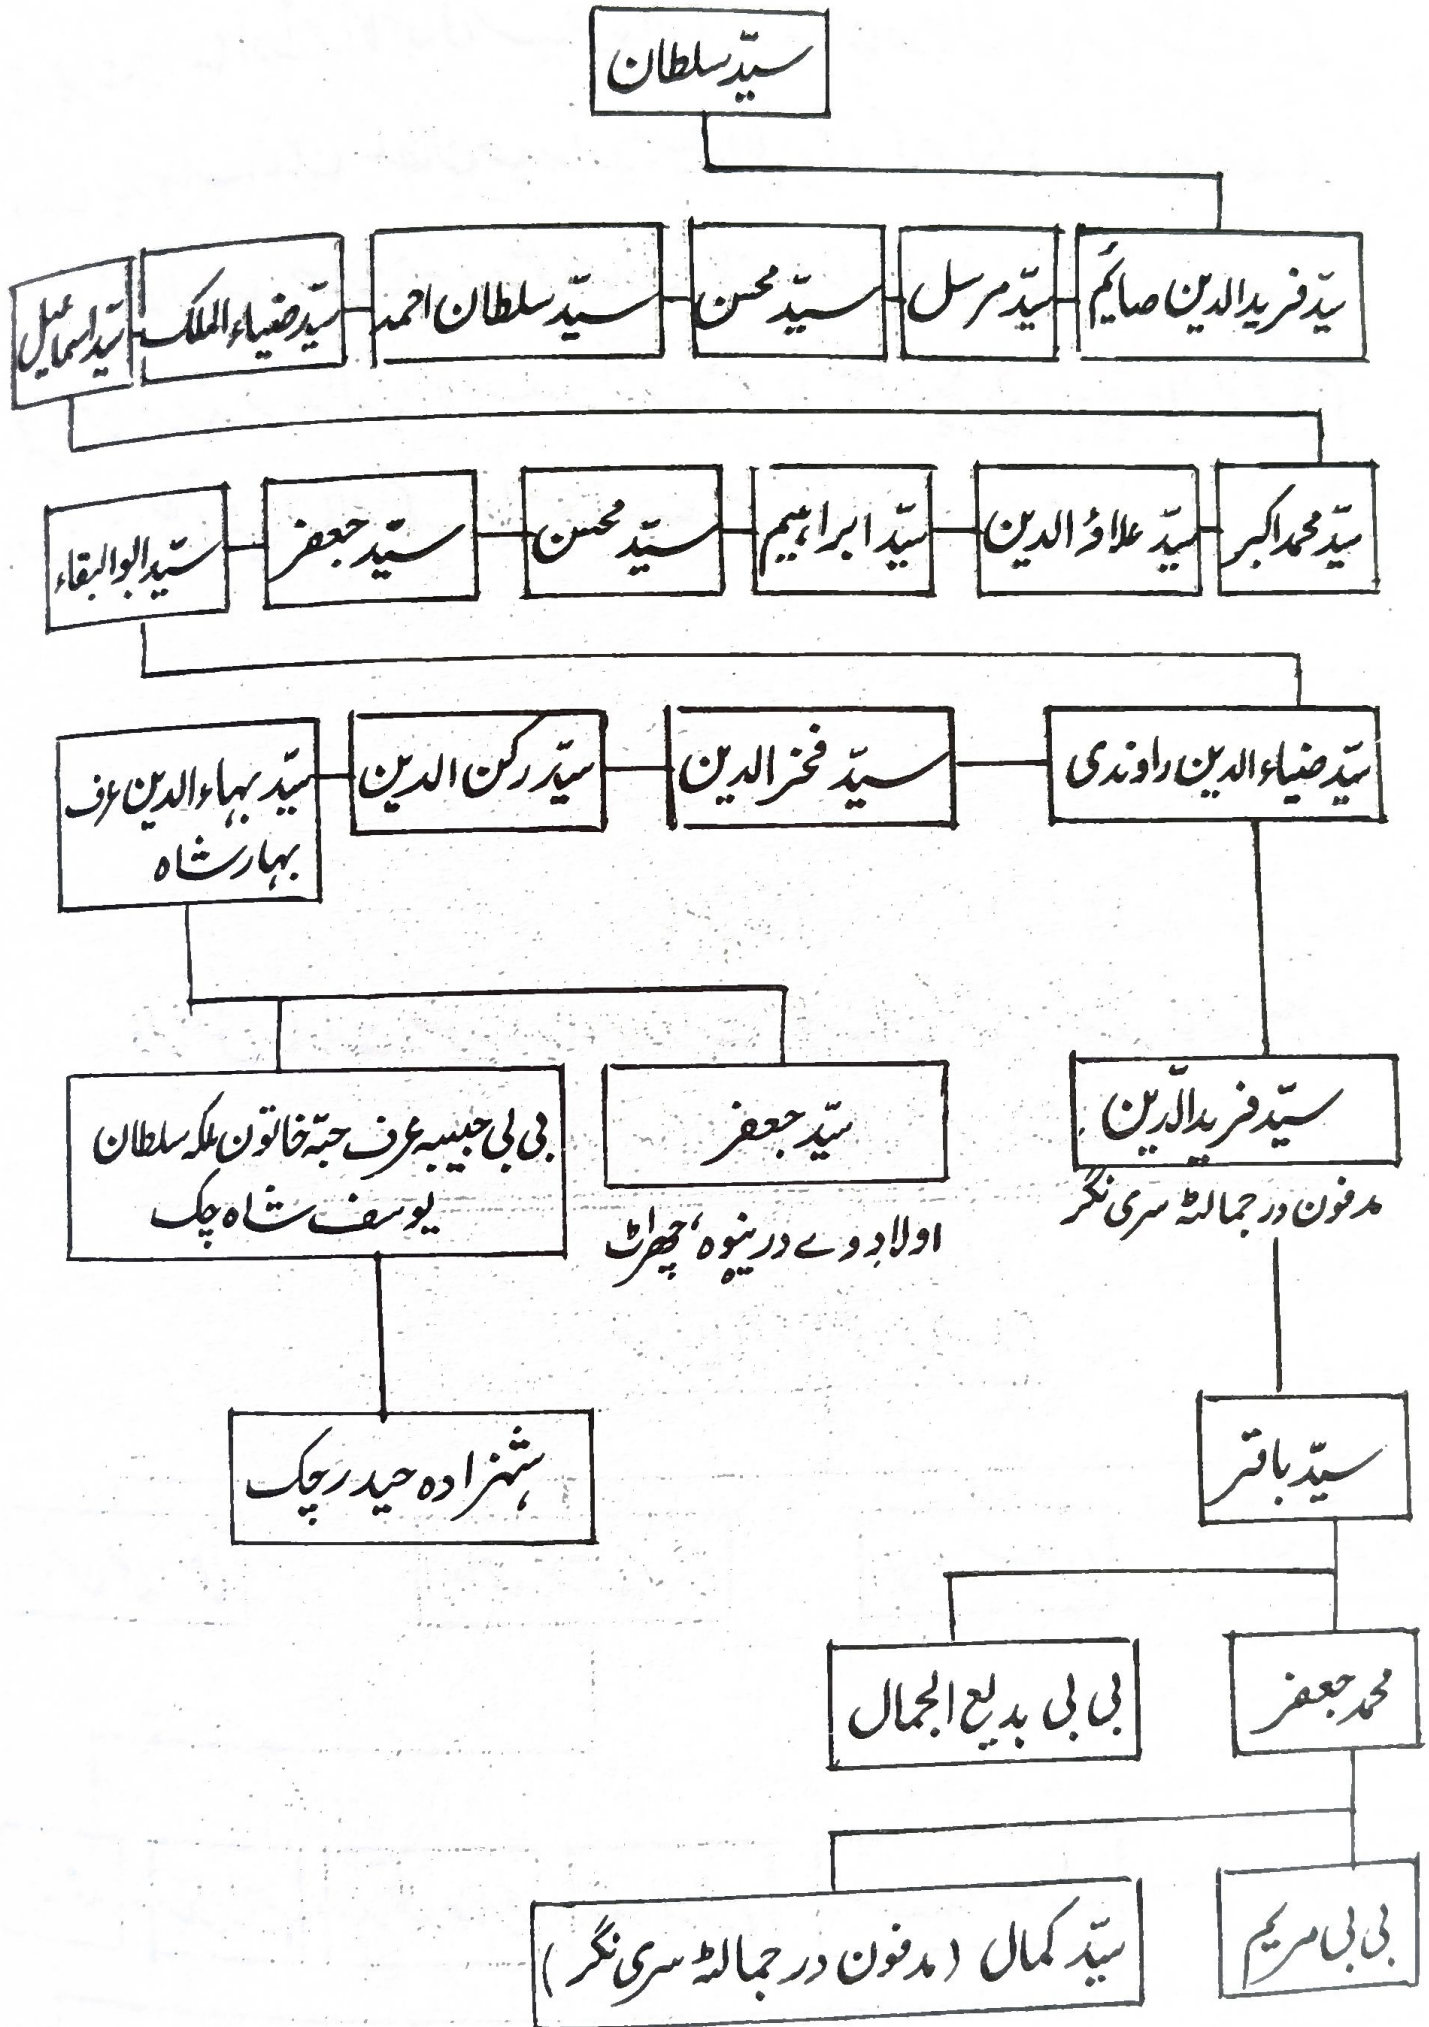 سیّد سلطان
سیّد فرید الدین صائم
سیّد مرسل
سیّد محسن
سیّد سلطان احمد
سیّد ضیاء الملک
سیّد اسماعیل
سیّد محمد اکبر
سیّد علاؤ الدین
سیّد ابراہیم
سیّد محسن
سیّد جعفر
سیّد ابو البقاء
سیّد ضیاء الدین راوندی
سیّد فخر الدین
سیّد رکن الدین
سیّد بہاء الدین عرف
بہار شاہ
سیّد فرید الدّین
مدفون در جمالٹہ سری نگر
سیّد جعفر
اولاد وے در
بی بی حبیبہ عرف حبّہ خاتون ملکہ سلطان
یوسف شاہ چک
شہزادہ حیدر چک
سیّد باقر
محمد جعفر
بی بی بدیع الجمال
بی بی مریم
سیّد کمال (مدفون در جمالٹہ سری نگر)